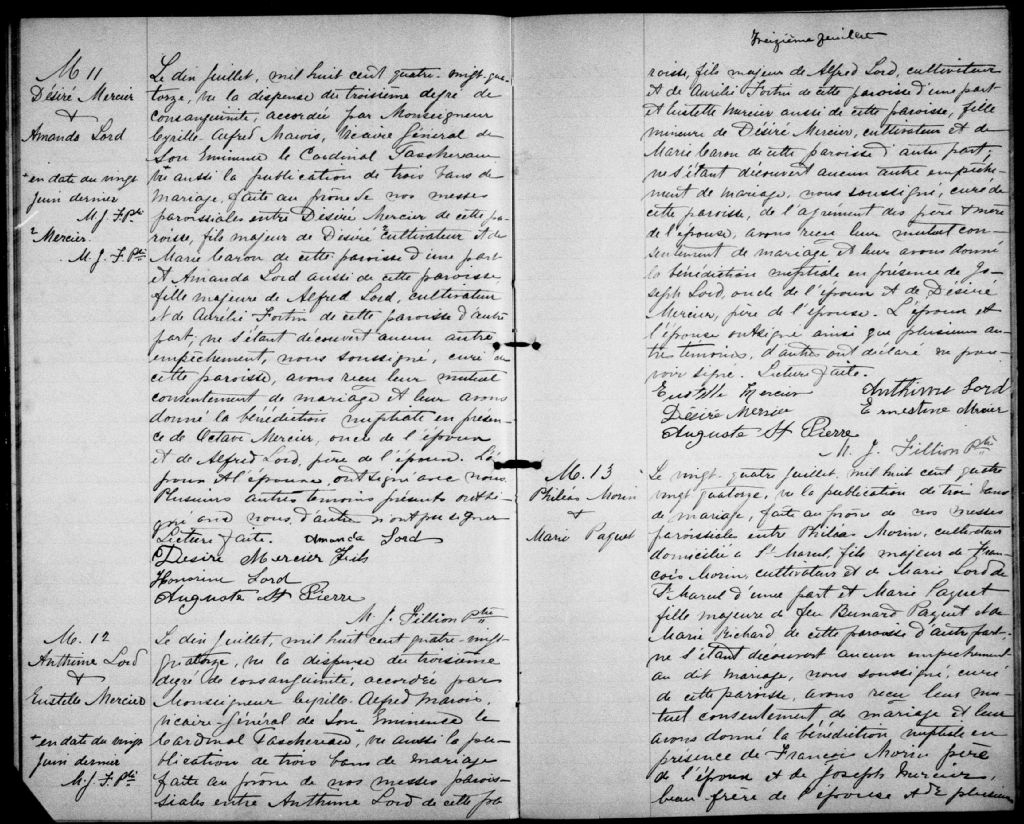 M 11
Désiré Mercier
&
Amanda Lord
+ en date du vingt
juin dernier
M. J. F. Ptr
² Mercier.
M. J. F. Ptr
Le dix Juillet, mil huit cent quatre-vingt-qua-
torze, vu la dispense du troisième degré de
consanguinité, accordée par Monseigneur
Cyrille Alfred Marois, Vicaire Général de
Son Eminence le Cardinal Taschereau
vu aussi la publication de trois bans de
mariage, faite au prône de nos messes
paroissiales entre Désiré Mercier de cette pa-
roisse, fils majeur de Désiré ² cultivateur et de
Marie Caron de cette paroisse d'une part
et Amanda Lord aussi de cette paroisse,
fille majeure de Alfred Lord, cultivateur
et de Aurélie Fortin de cette paroisse d'autre
part; ne s'étant découvert aucun autre
empêchement, nous soussigné, curé de
cette paroisse, avons reçu leur mutuel
consentement de mariage et leur avons
donné la bénédiction nuptiale en présen-
ce de Octave Mercier, oncle de l'époux
et de Alfred Lord, père de l'épouse. L'é-
poux et l'épouse ont signé avec nous.
Plusieurs autres témoins présents ont si-
gné avec nous, d'autre n'ont pu signer
Lecture faite. Amanda Lord
Désiré Mercier fils
Honorine Lord
Auguste St Pierre
M. J. Fillion Ptre
M. 12
Anthime Lord
&
Eustelle Mercier
+ en date du vingt
juin dernier
M. J. F. Ptr
Le dix Juillet, mil huit cent quatre-vingt-
quatorze, vu la dispense du troisième
degré de consanguinité, accordée par
Monseigneur Cyrille Alfred Marois,
vicaire-Général de Son Eminence le
Cardinal Taschereau +, vu aussi la pu-
blication de trois bans de mariage
faite au prône de nos messes parois-
siales entre Anthime Lord de cette pa-
Treizième feuillet
roisse, fils majeur de Alfred Lord, cultivateur
et de Aurélie Fortin de cette paroisse d'une part
et Eustelle Mercier aussi de cette paroisse, fille
mineure de Désiré Mercier, cultivateur et de
Marie Caron de cette paroisse d'autre part;
ne s'étant découvert aucun autre empêche-
ment de mariage, nous soussigné, curé de
cette paroisse, de l'agrément des père & mère
de l'épouse, avons reçu leur mutuel con-
sentement de mariage et leur avons donné
la bénédiction nuptiale en présence de Jo-
seph Lord, oncle de l'époux et de Désiré
Mercier, père de l'épouse. L'époux et
l'épouse ont signé ainsi que plusieurs au-
tre témoins, d'autre ont déclaré ne pou-
voir signé. Lecture faite.
Eustelle Mercier Anthime Lord
Désiré Mercier Ernestine Mercier
Auguste St Pierre
M. J. Fillion Ptre
M. 13
Philéas Morin
&
Marie Paquet
Le vingt-quatre Juillet, mil huit cent quatre
vingt quatorze, vu la publication de trois bans
de mariage, faite au prône de nos messes
paroissiales entre Philéas Morin, cultivateur
domicilié à St Marcel, fils majeur de Fran-
çois Morin, cultivateur et de Marie Lord de
St Marcel d'une part et Marie Paquet
fille majeure de feu Bernard Paquet et de
Marie Richard de cette paroisse d'autre part-
ne s'étant découvert aucun empêchement
au dit mariage, nous soussigné, curé
de cette paroisse, avons reçu leur mu-
tuel consentement de mariage et leur
avons donné la bénédiction nuptiale en
présence de Francis Morin père
de l'époux et de Joseph Mercier,
beau-frère de l'épouse et de plusieurs